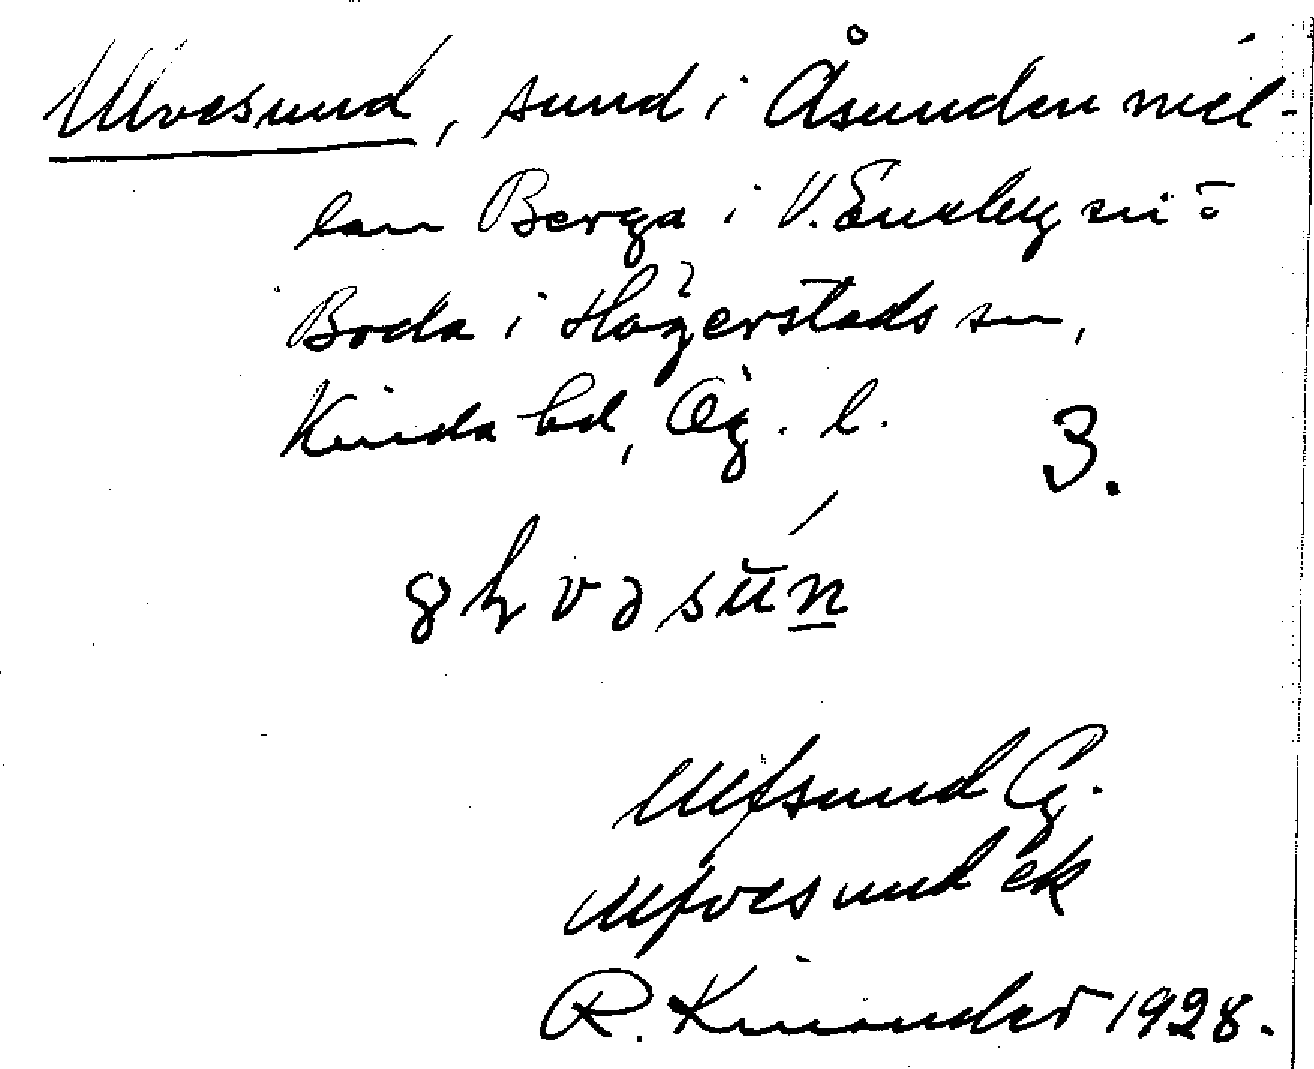 Ulvesund, sund i Åsunden mel-
lan Berga i V. Eneby sn o
Boda i Hägerstads sn,
Kinda hd, Ög. l.
3.
Ulfsund Cg.
Ulfvesund ek
R. Kinander 1928.